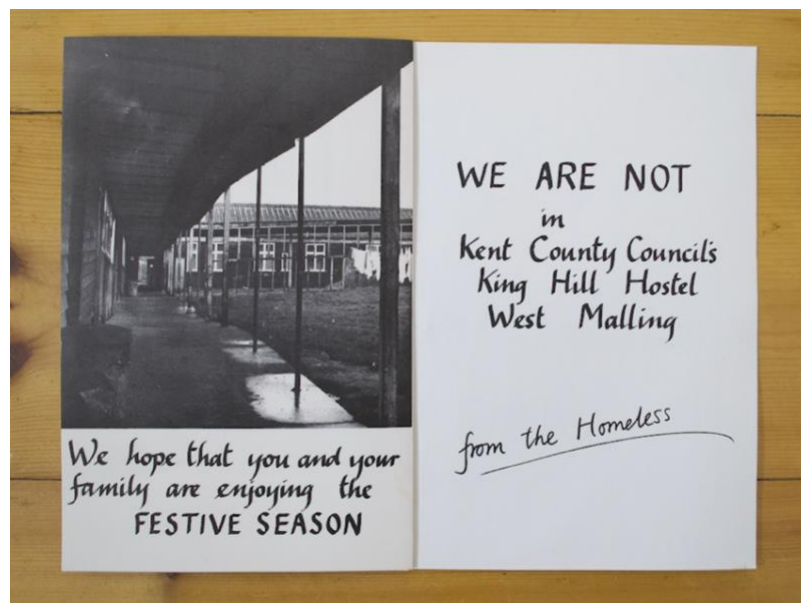 We hope that you and your
family are enjoying the
FESTIVE SEASON
WE ARE NOT
in
Kent County Council's
King Hill Hostel
West Malling
from the Homeless